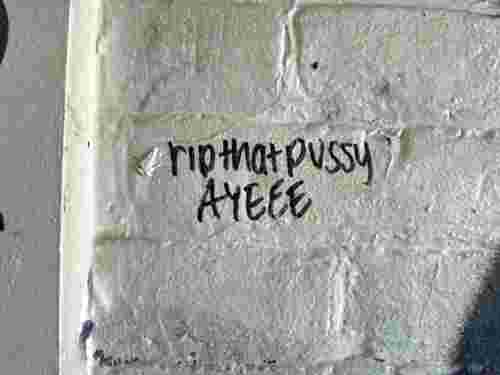 ripthatpussy
AYEEE